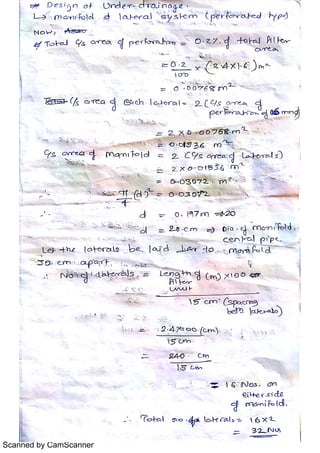 * Design of Under-drainage.
↳ manifold & lateral system (perforated type)
Now,
Total C/s area of perforation = 0.2% of total filter area
= 0.2/100 × (2.4×1.6) m²
= 0.00768 m²
C/s area of each lateral = 2 (C/s area of perforation of mmϕ)
= 2 × 0.00768 m²
= 0.01536 m²
C/s area of manifold = 2 (C/s area of laterals)
= 2 × 0.01536 m²
= 0.03072 m²
∴ π/4 (d)² = 0.03072
d = 0.197m
d = 20 cm ⇒ Dia. of manifold. central pipe.
Let the laterals be laid to manifold
cm apart.
∴ No. of laterals = Length of filter unit (m) × 100
15 cm (spacing betn laterals)
= 2.4×100 (cm)
15 cm
= 240 cm
15 cm
= 16 Nos. on either side of manifold.
∴ Total no. of laterals = 16×2
= 32 Nos
Scanned by CamScanner